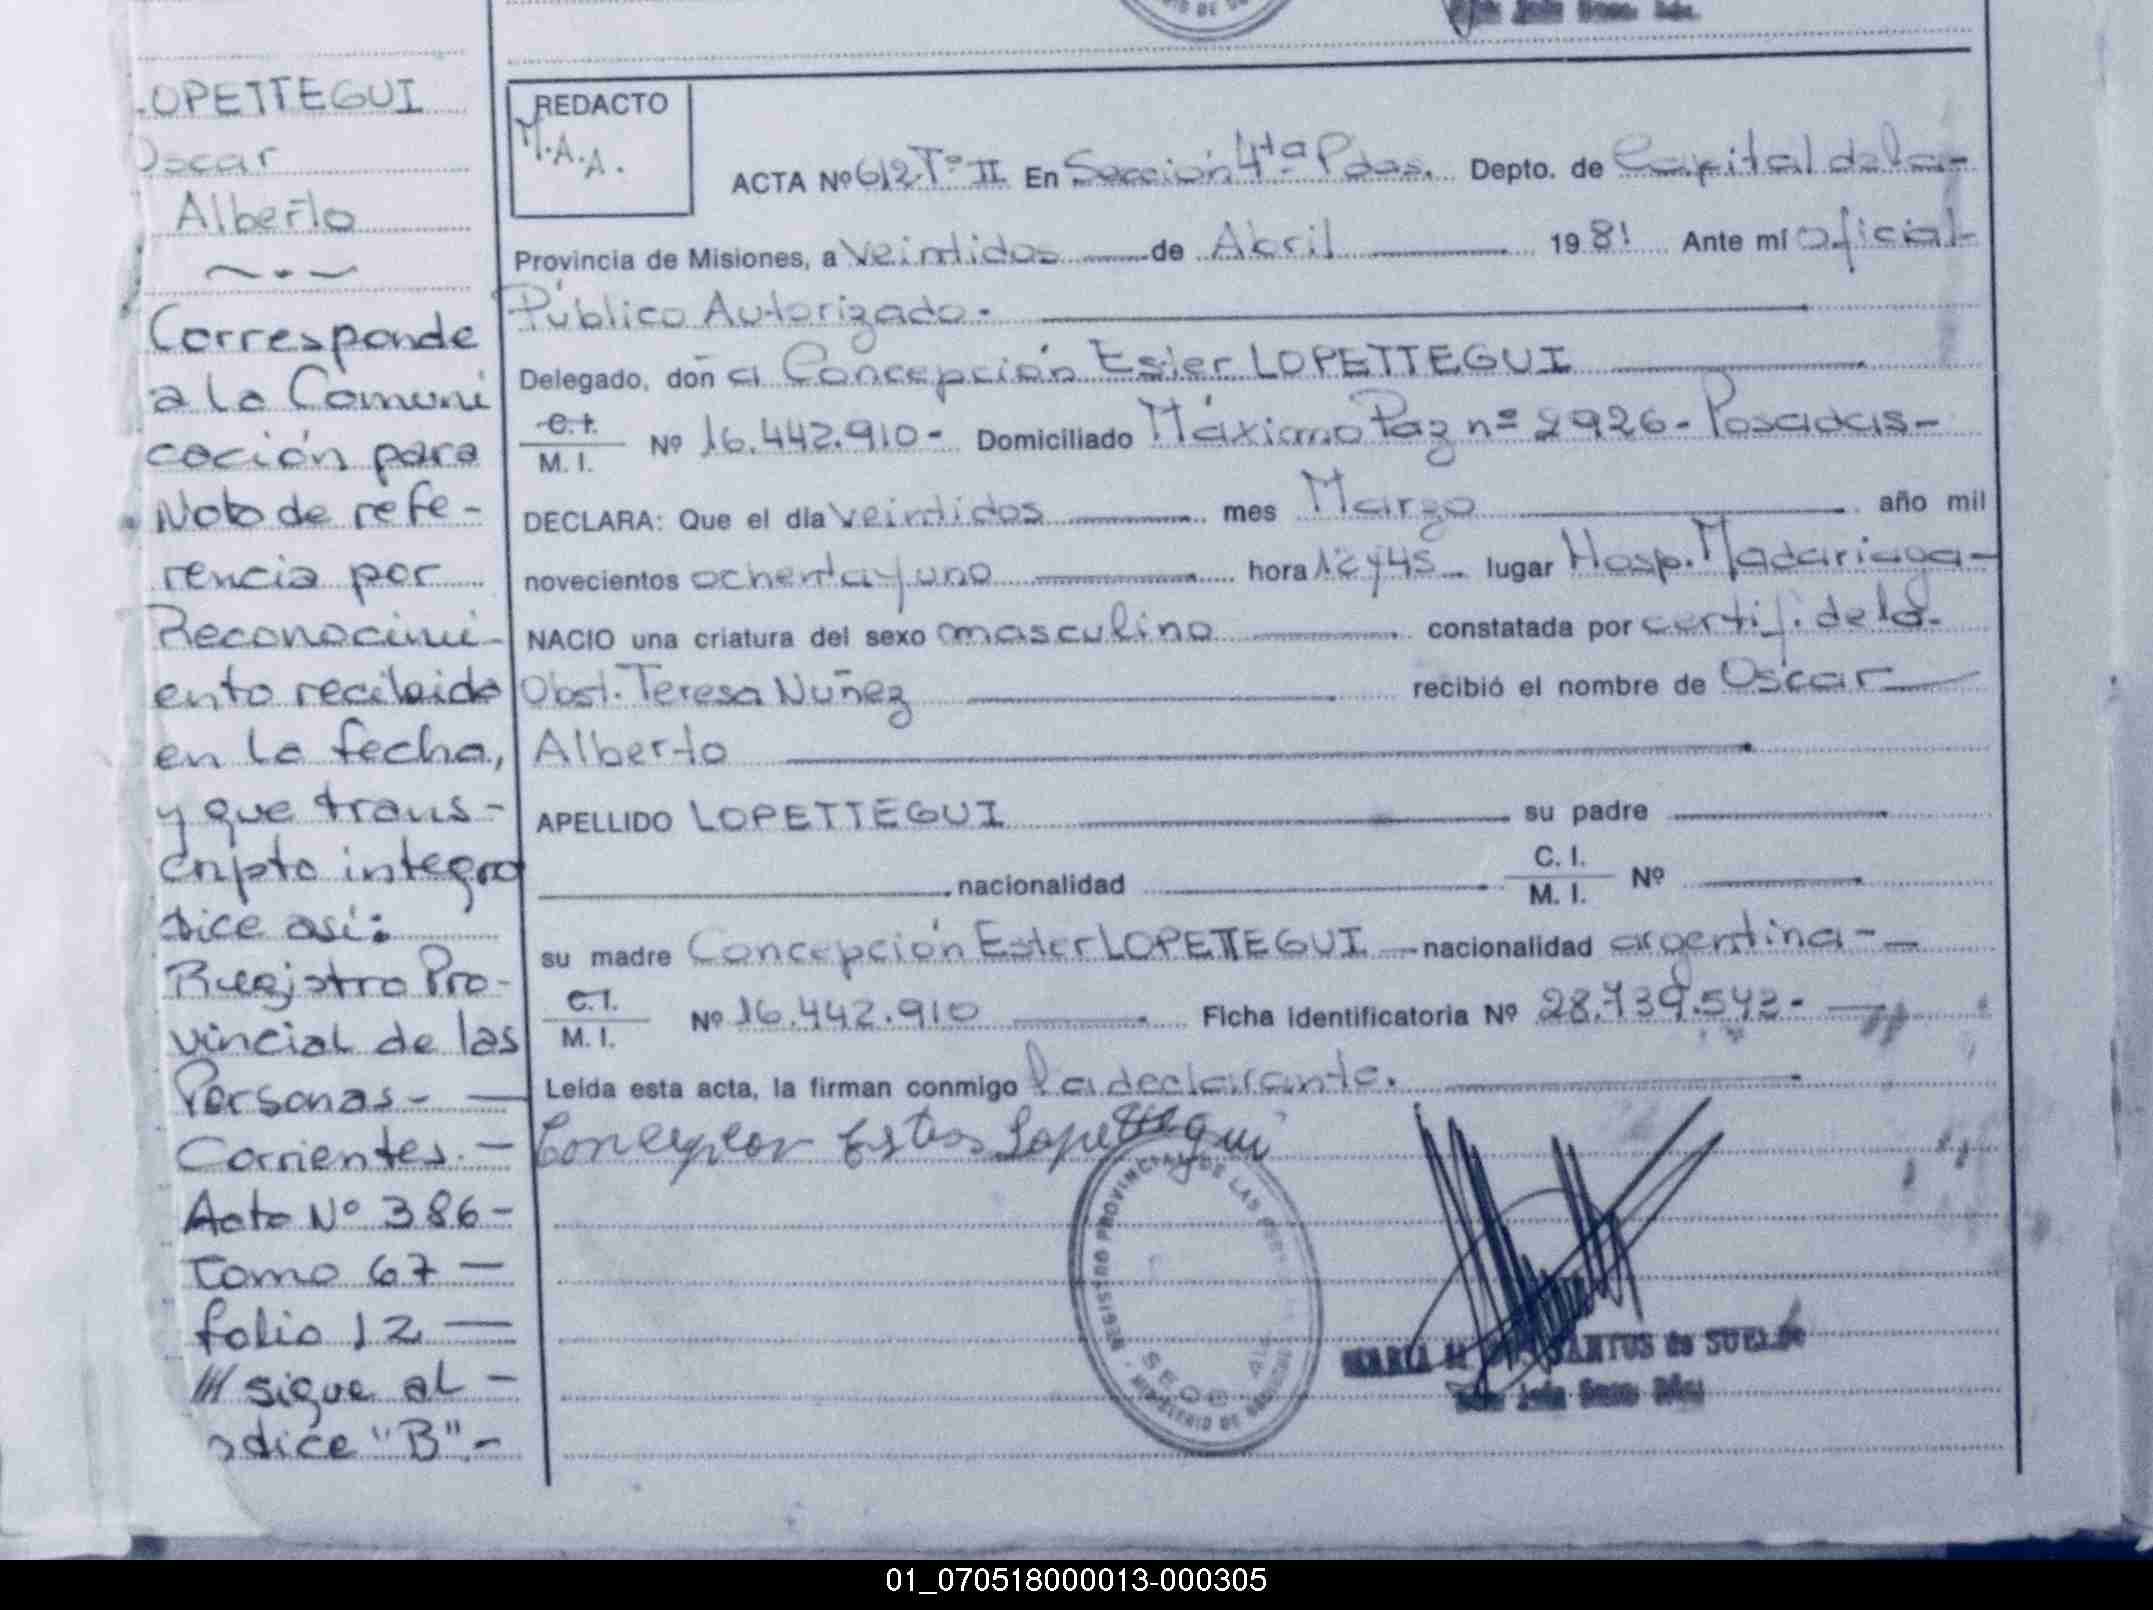 LOPETTEGUI
Oscar
Alberto
Corresponde
a la Comuni
cación para
Nota de refe-
rencia por
Reconocimi-
ento recibido
en la fecha,
y que trans-
cripta integra
dice así:
Registro Pro-
vincial de las
Personas-
Corrientes.-
Acta Nº 386-
Tomo 67-
folio 12-
/// sigue al
dice "B".-
REDACTO
M.A.A.
ACTA Nº 612 Tº II En Sección 4ta Pdas. Depto. de Capital de la-
Provincia de Misiones, a veintidos de Abril 1981 Ante mí oficial-
Público Autorizado.
Delegado, doña Concepción Ester LOPETTEGUI
C.I.
M. I. Nº 16.442.910- Domiciliado Máximo Paz nº 2926- Posadas-
DECLARA: Que el día veintidos mes Marzo año mil
novecientos ochenta y uno hora 12 y 45 lugar Hosp. Madariaga-
NACIO una criatura del sexo masculino constatada por certif. de la-
Obst. Teresa Nuñez recibió el nombre de Oscar
Alberto
APELLIDO LOPETTEGUI su padre
nacionalidad C. I.
M. I. Nº
su madre Concepción Ester LOPETTEGUI nacionalidad argentina-
C.I.
M. I. Nº 16.442.910 Ficha identificatoria Nº 28.739.542-
Leída esta acta, la firman conmigo la declarante.
Concepcion Ester Lopettegui
REGISTRO PROVINCIAL DE LAS
MARIA SANTOS de SUELDO
01_070518000013-000305